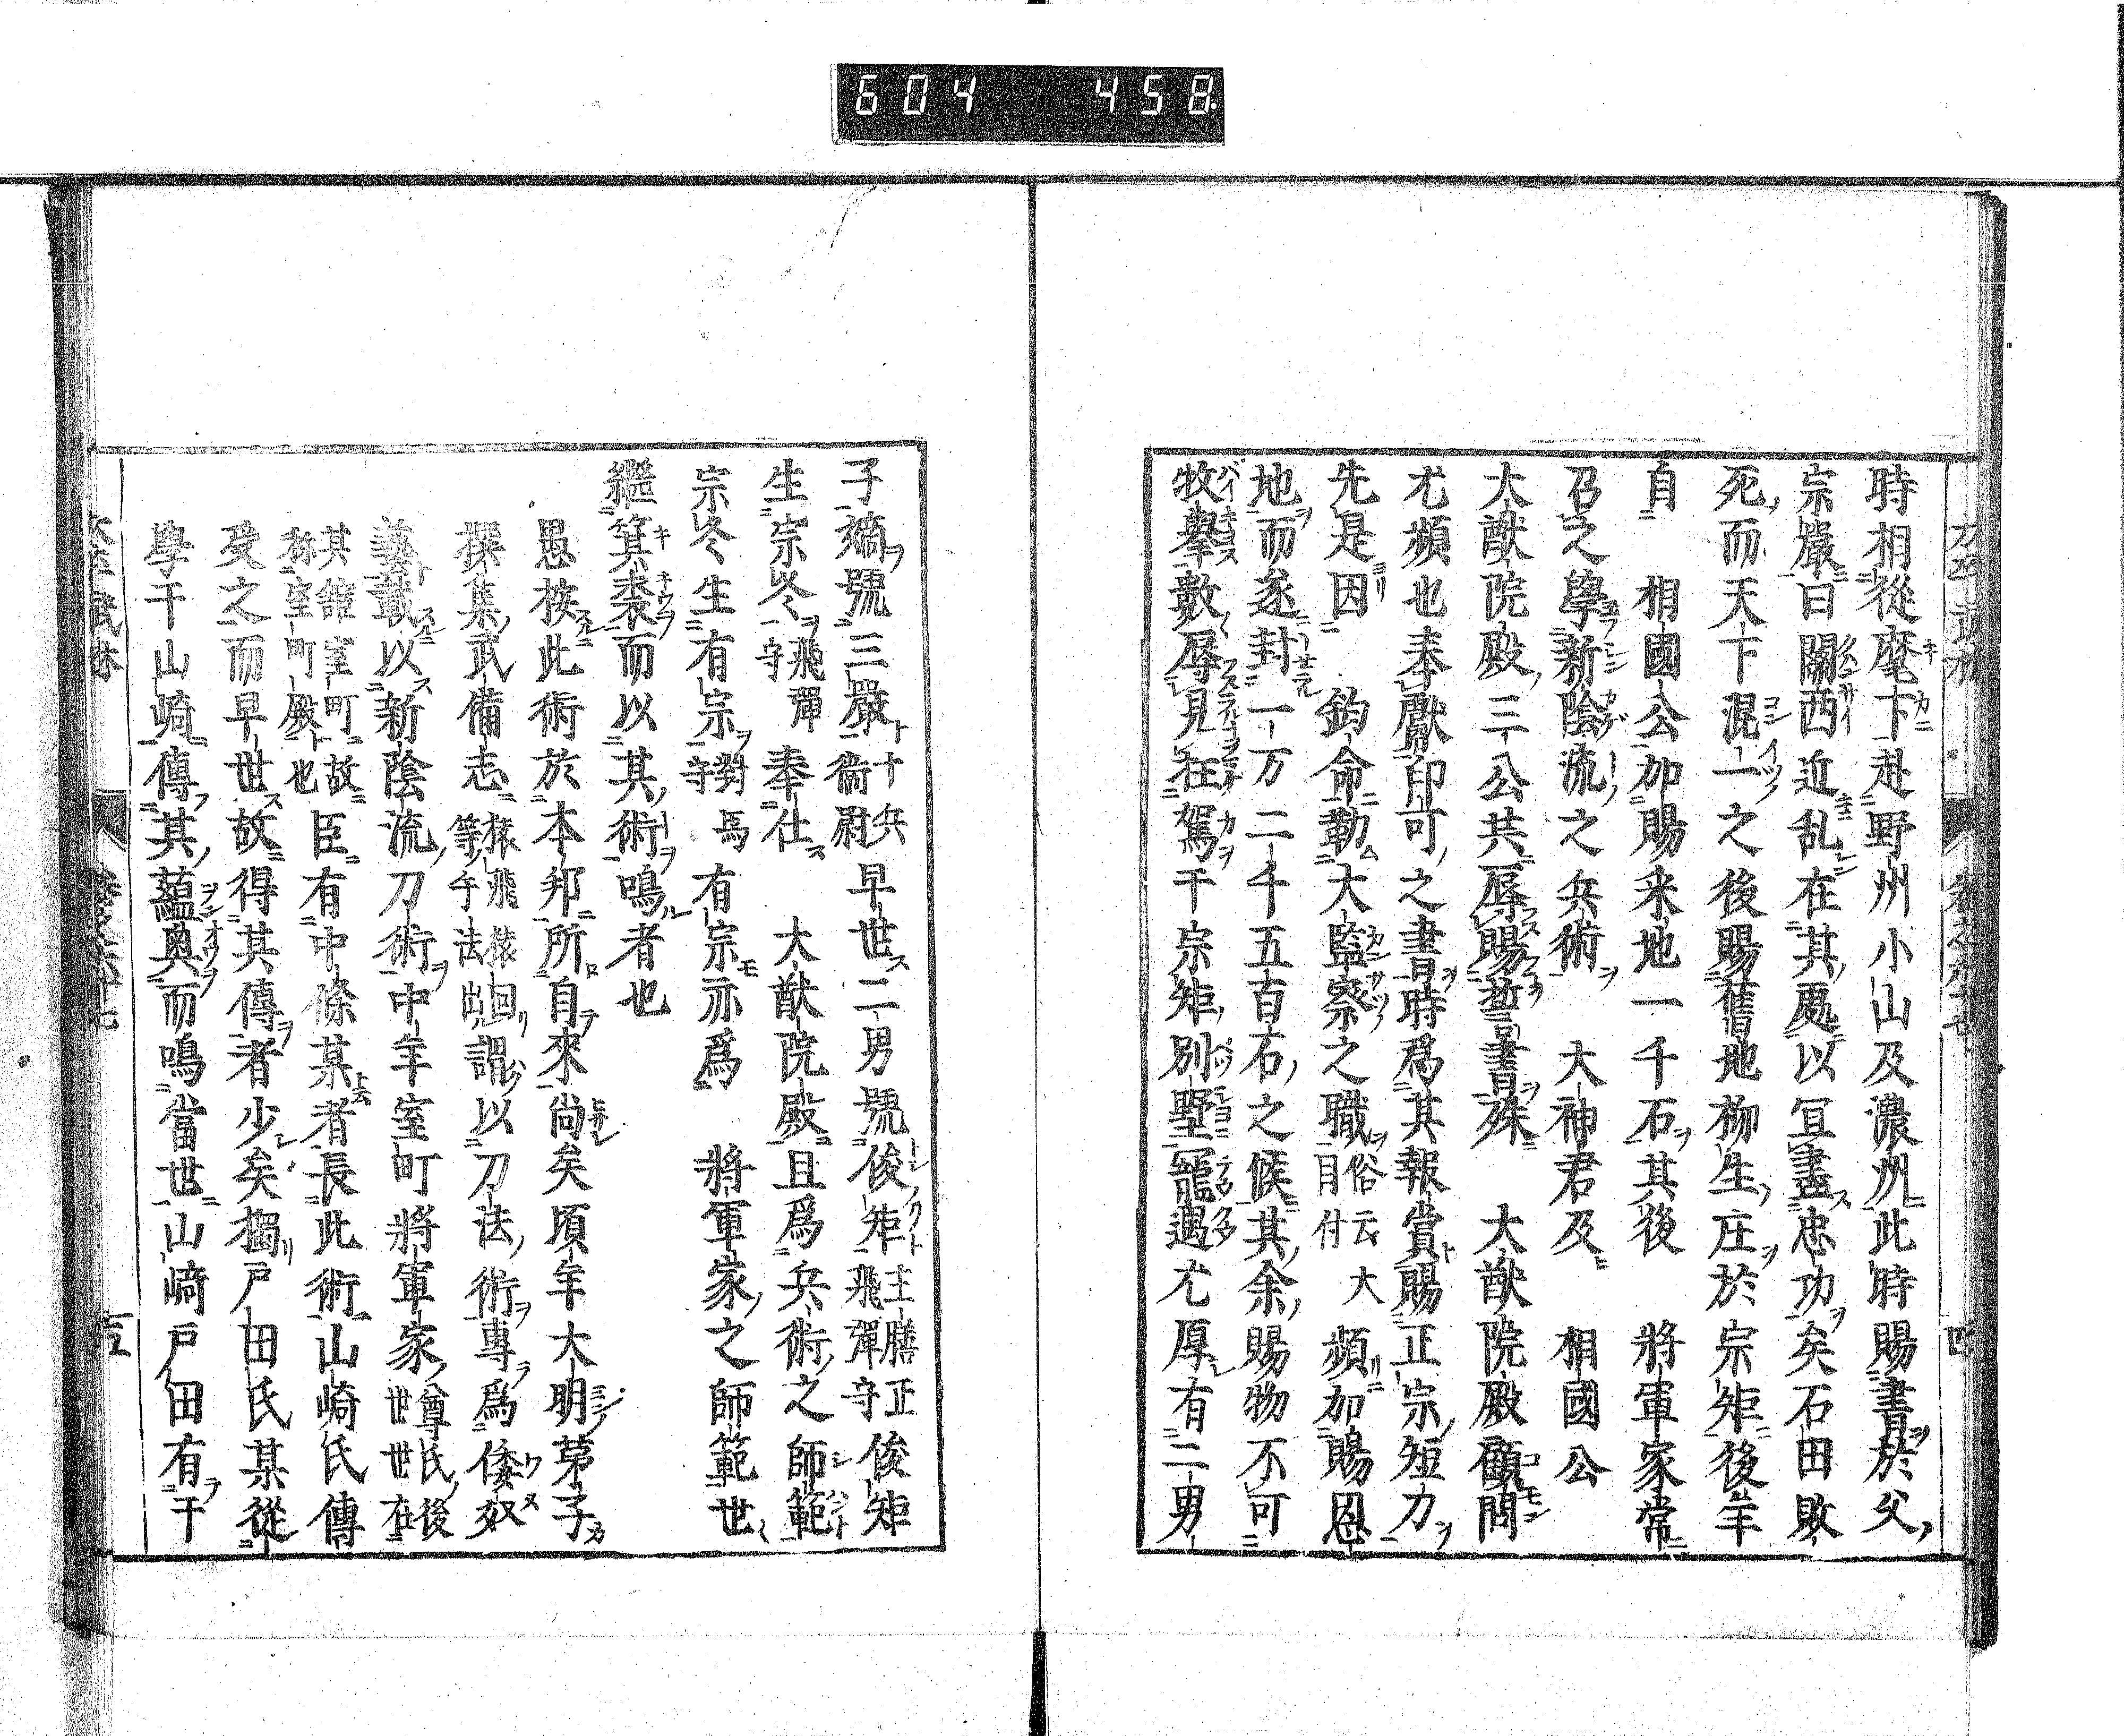 604 458
時相從麾下赴野州小山及濃州此時賜書於父
宗嚴曰關西近乱在其處以冝盡忠功矣石田敗
死而天下混一之後賜舊地柳生庄於宗矩後年
自　相國公加賜来地一千石其後　將軍家常
召之學新陰流之兵術　大神君及　相國公
大猷院殿三公共辱賜誓書殊　大猷院殿顧問
尤頻也奉獻印可之書時爲其報賞賜正宗短刀
先是因　鈞命勒大監察之職俗云大目付頻加賜恩
地而遂封一万二千五百石之候其余賜物不可
牧擧數辱見枉駕干宗矩別墅寵遇尤厚有二男
子嫡號三嚴十兵衞尉早世二男號俊矩主膳正飛彈守俊矩
生宗冬飛彈守奉仕　大猷院殿且爲兵術之師範
宗冬生有宗對馬守有宗亦爲　將軍家之師範世
繼箕裘而以其術鳴者也
愚按此術於本邦所自來尚矣頃年大明茅子
撰集武備志猿飛猿回等手法出謂以刀法術專爲倭奴
藝載以新陰流刀術中年室町將軍家尊氏後世世在
其舘室町故稱室町殿也臣有中條某者長此術山崎氏傳
受之而早世故得其傳者少矣獨戸田氏某從
學干山崎傳其蘊奥而鳴當世山崎戸田有干